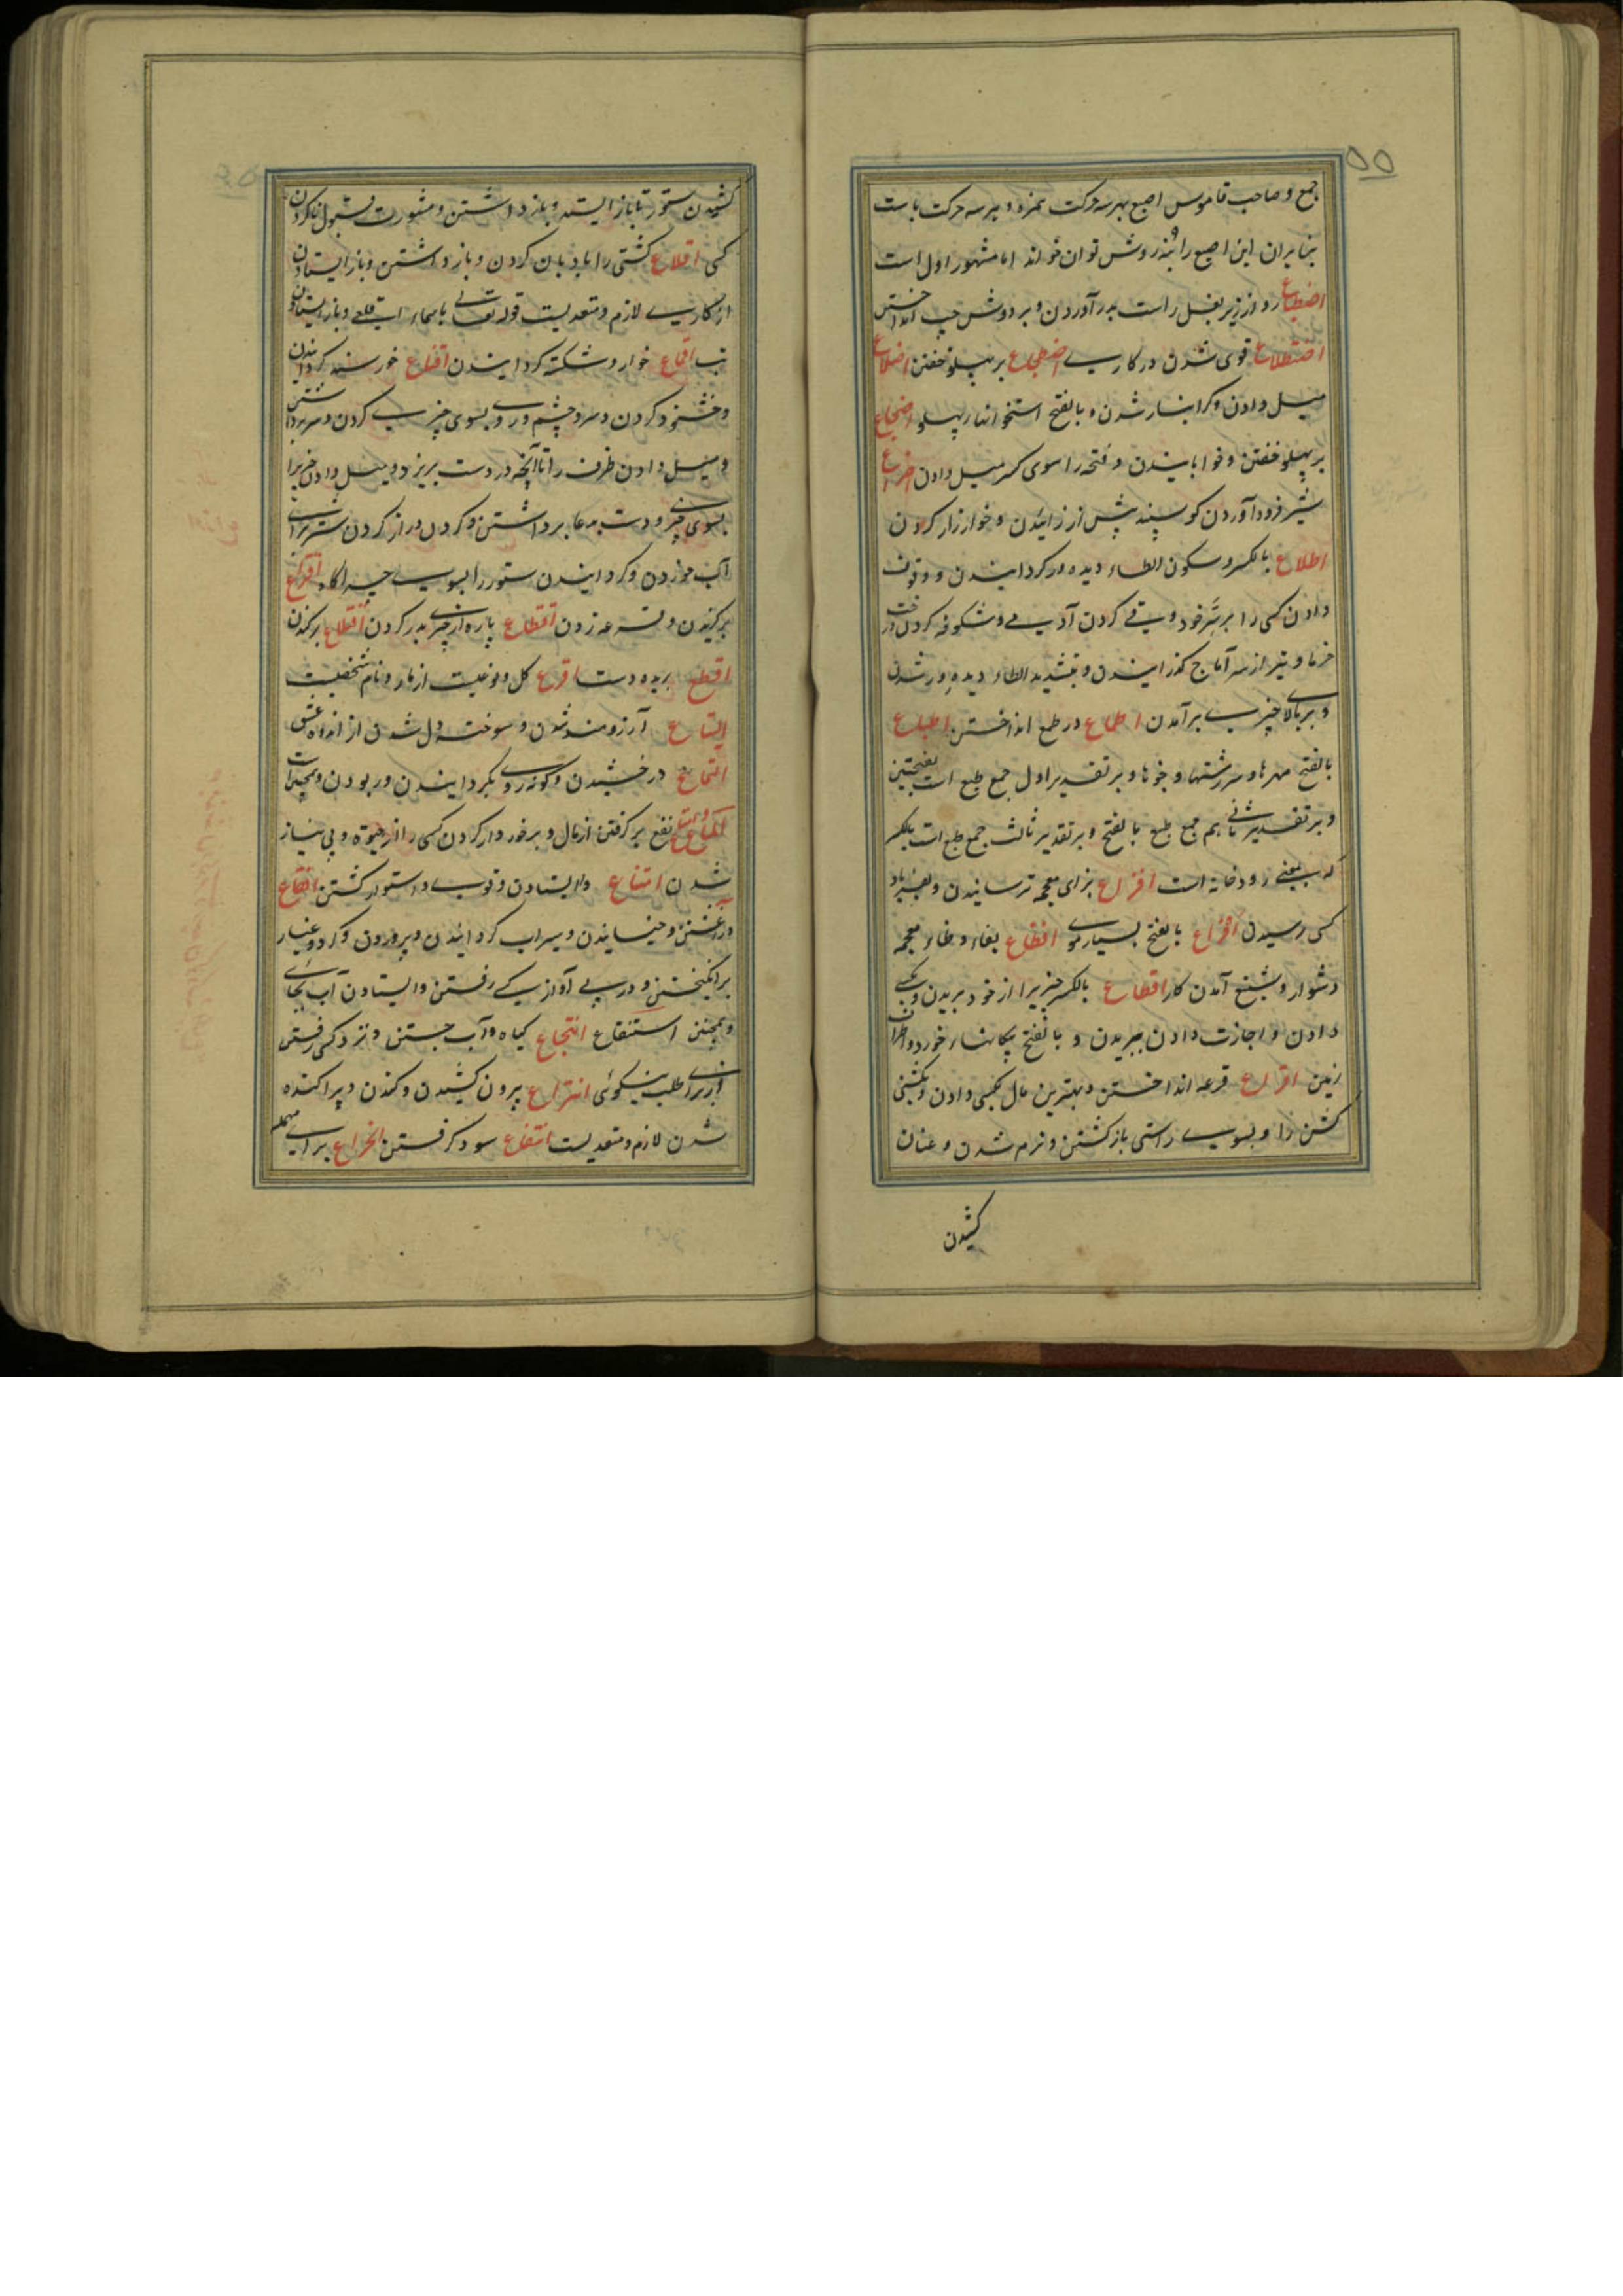 ۵۵
جمع و صاحب قاموس اصبع بهر سه حرکت همزه و بهر سه حرکت با ست
بنابران این اصبع را بنه روش توان خواند اما مشهور اول است
اضطباع ردا از زیر بغل راست بدر آوردن و بر دوش چپ انداختن
اضطلاع قوی شدن در کاری اضطجاع بر پهلو خفتن اضلاع
میل دادن و کرانبار شدن و بالفتح استخوانهای پهلو اضجاع
بر پهلو خفتن و خوابانیدن و فتحه را سوی کسر میل دادن اضراع
شیر فرود آوردن کوسپند پیش از زائیدن و خوار زار کردن
اطلاع بالکسر و سکون الطاء دیده ور کردانیدن و وقوف
دادن کسی را بر سر خود و قی کردن آدمی و شکوفه کردن درخت
خرما و تیر از سر آماج کذرانیدن و بتشدید الطاء دیده ور شدن
و بر بالای چیزی بر آمدن اطماع در طمع انداختن اطباع
بالفتح مهرها و سرشتها و جوها و بر تقدیر اول جمع طبع است بفتحتین
و بر تقدیر ثانی هم جمع طبع بالفتح و بر تقدیر ثالث جمع طبع است بالکسر
که بمعنی رودخانه است افزاع بزای معجمه ترسانیدن و بفریاد
کسی رسیدن افراع بالفتح بسیار موی افظاع بفاء و ظاء معجمه
دشوار و شنیع آمدن کار اقطاع بالکسر چیزی را از خود بریدن و بکسی
دادن و اجازت دادن ببریدن و بالفتح پیکانهای خورد و اطراف
زمین اقراع قرعه انداختن و بهترین مال بکسی دادن و بکشنی
کشن را و بسوی راستی باز کشتن و نرم شدن و عنان
کشیدن
کشیدن ستور تا باز ایستد و باز داشتن و مشورت قبول ناکردن
کسی اقلاع کشتی را بادبان کردن و باز داشتن و باز ایستادن
از کاری لازم و متعدیست قوله تعالی یا سماء اقلعی و باز ایستادن
تب اقماع خوار و شکسته کردانیدن اقناع خورسند کردانیدن
و خشنود کردن و سر و چشم و روی بسوی چیزی کردن و سر برداشتن
و میل دادن ظرف را تا آنچه در دست بریزد و میل دادن چیزی را
بسوی چیزی و دست بدعا برداشتن و کردن دراز کردن شتر برای
آب خوردن و کردانیدن ستور را بسوی چراگاه اقتراع
برکزیدن و قرعه زدن اقتطاع پاره از چیزی بدر کردن اقتلاع برکندن
اقطع بریده دست اقرع کل و نوعیست از مار و نام شخصیست
التیاع آرزومند شدن و سوخته دل شدن از اندوه عشق
التماع درخشیدن و کونه روی بکردانیدن و ربودن و همچنین است
الماع و امتاع نفع بر کرفتن از مال و برخوردار کردن کسی را از حیوة و بی نیاز
شدن امتناع وا ایستادن و قوی و استوار کشتن انقاع
در آغشتن و خیسانیدن و سیراب کردانیدن و پروردن و کرد و غبار
برانکیختن و در پی آواز کسی رفتن و ایستادن آب بجای
و همچنین استنقاع انتجاع کیاه و آب جستن و نزد کسی رفتن
از برای طلب نیکوئی انتزاع بیرون کشیدن و کندن و پراکنده
شدن لازم و متعدیست انتفاع سود کرفتن انخراع برای مهمله